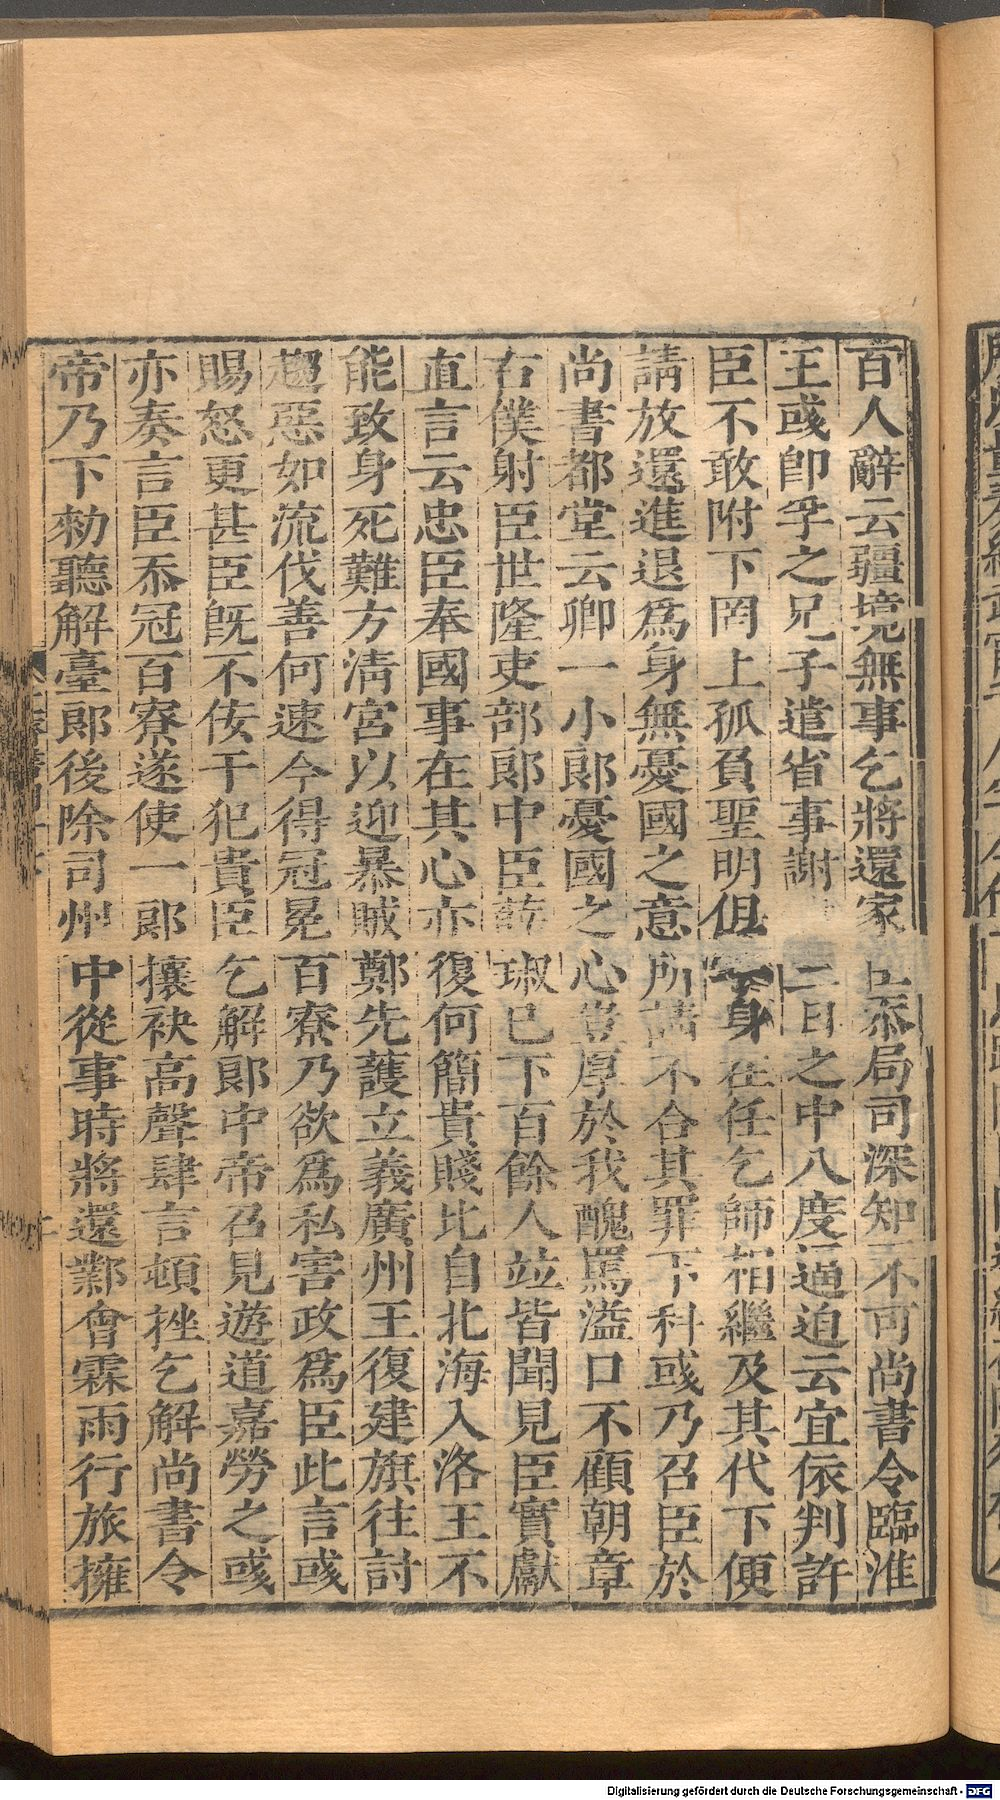 百人辭云疆境無事乞將還家臣忝局司深知不可尚書令臨淮
王彧即孚之兄子遣省事謝二日之中八度逼迫云宜依判許
臣不敢附下罔上孤負聖明但身在任乞師相繼及其代下便
請放還進退為身無憂國之意所請不合其罪下科彧乃召臣於
尚書都堂云卿一小郎憂國之心豈厚於我醜罵溢口不顧朝章
右僕射臣世隆吏部郎中臣薛琡已下百餘人竝皆聞見臣實獻
直言云忠臣奉國事在其心亦復何簡貴賤比自北海入洛王不
能致身死難方淸宮以迎暴賊鄭先護立義廣州王復建旗往討
趨惡如流伐善何速今得冠冕百寮乃欲為私害政為臣此言彧
賜怒更甚臣旣不佞干犯貴臣乞解郎中帝召見遊道嘉勞之彧
亦奏言臣忝冠百寮遂使一郎攘袂高聲肆言頓挫乞解尚書令
帝乃下勑聽解臺郎後除司州中從事時將還鄴會霖雨行旅擁
Digitalisierung gefördert durch die Deutsche Forschungsgemeinschaft - DFG